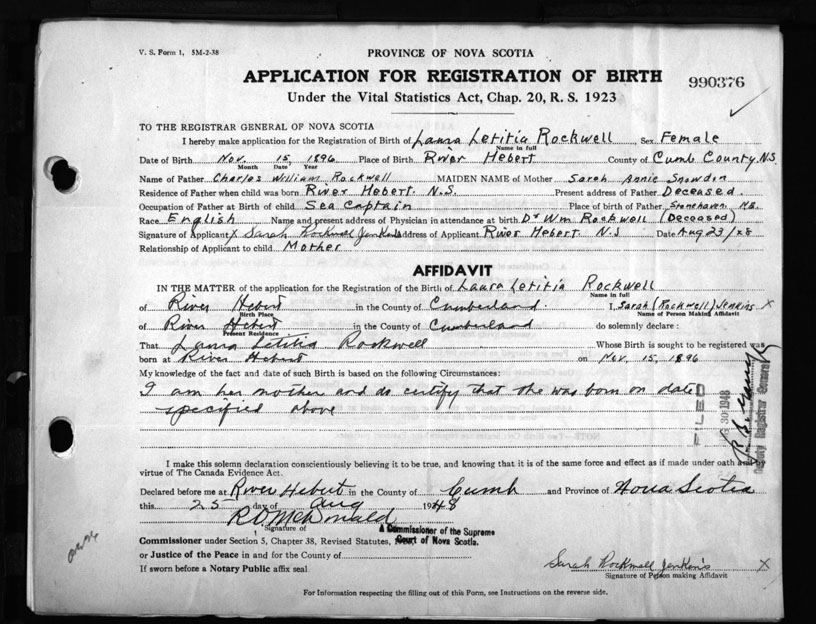 V. S. Form 1, 5M-2-38
PROVINCE OF NOVA SCOTIA
APPLICATION FOR REGISTRATION OF BIRTH
990376
Under the Vital Statistics Act, Chap. 20, R. S. 1923
TO THE REGISTRAR GENERAL OF NOVA SCOTIA
I hereby make application for the Registration of Birth of Laura Letitia Rockwell Sex Female
Name in full
Date of Birth Nov. 15, 1896 Place of Birth River Hebert County of Cumb County N.S.
Month Date Year
Name of Father Charles William Rockwell MAIDEN NAME of Mother Sarah Annie Snowdon
Residence of Father when child was born River Hebert N.S. Present address of Father Deceased
Occupation of Father at Birth of child Sea Captain Place of birth of Father, Stonehaven,
Race English Name and present address of Physician in attendance at birth Dr Wm Rockwell (Deceased)
Signature of Applicant X Sarah Rockwell Jenkins Address of Applicant River Hebert N.S Date Aug 23/48
Relationship of Applicant to child Mother
AFFIDAVIT
IN THE MATTER of the application for the Registration of the Birth of Laura Letitia Rockwell
Name in full
of River Hebert in the County of Cumberland I, Sarah (Rockwell) Jenkins X
Birth Place Name of Person Making Affidavit
of River Hebert in the County of Cumberland do solemnly declare :
Present Residence
That Laura Letitia Rockwell Whose Birth is sought to be registered was
born at River Hebert on Nov. 15, 1896
My knowledge of the fact and date of such Birth is based on the following Circumstances:
I am her mother and do certify that she was born on date
specified above
FILED
30 1948
Deputy Registrar General
I make this solemn declaration conscientiously believing it to be true, and knowing that it is of the same force and effect as if made under oath and by
virtue of The Canada Evidence Act.
Declared before me at River Hebert in the County of Cumb and Province of Nova Scotia
this 25 day of Aug 1948
R.D. McDonald
Signature of
A Commissioner of the Supreme
Court of Nova Scotia.
Commissioner under Section 5, Chapter 38, Revised Statutes,
or Justice of the Peace in and for the County of
If sworn before a Notary Public affix seal
Sarah Rockwell Jenkins X
Signature of Person making Affidavit
For Information respecting the filling out of this Form, see Instructions on the reverse side.